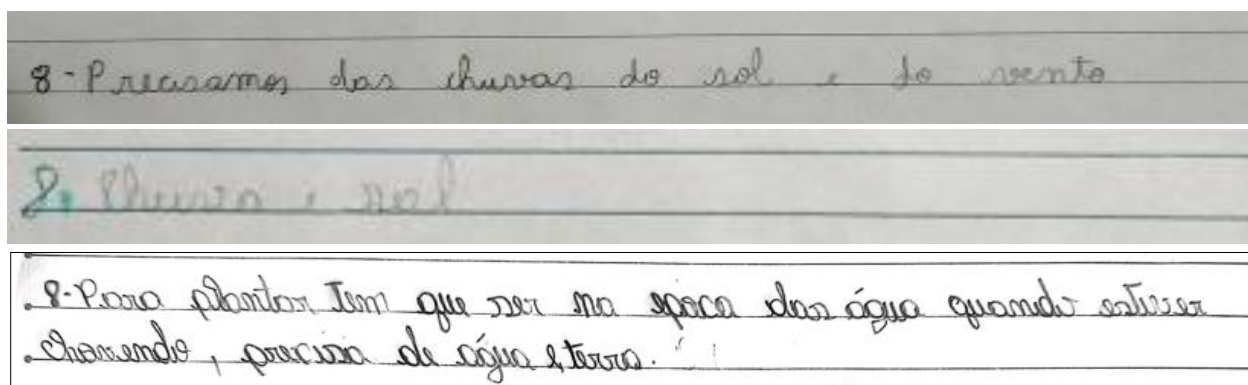 8-Precisamos das chuvas do sol e do vento
8. Chuva e sol
8-Para plantar Tem que ser na epoca das água quando estiver
chovendo, precisa de água e terra.